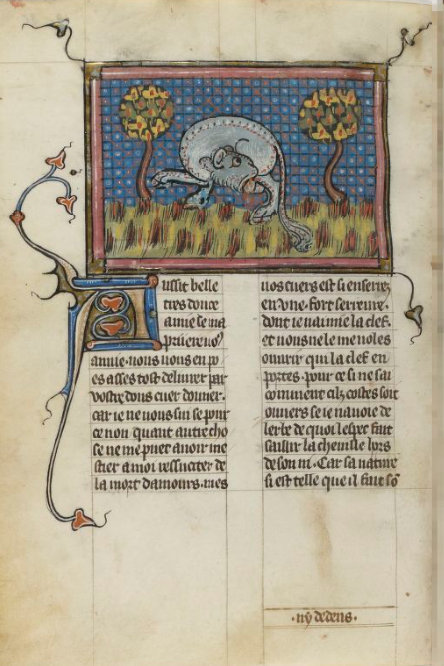 Aussit belle
tres douce
amie se ma
amie. nous nous en po
es asses tost deliurer par
vostre dous cuer donner.
car ie ne vous in se pour
ce non quant autre cho
se ne me puet auoir me
stier a moi ressusciter de
la mort damours. mes
uos cuers est si enserrez
en vne fort serreure.
dont ie nai mie la clef.
et vous ne le me voles
ouurir qui la clef en
portes. pour ce si ne sai
comment cilz costes soit
ouuers se ie nauoie de
lerbe de quoi lespec fait
saillir la cheuille hors
de son ni. Car sa nature
si est telle que il fait so
ny dedens.